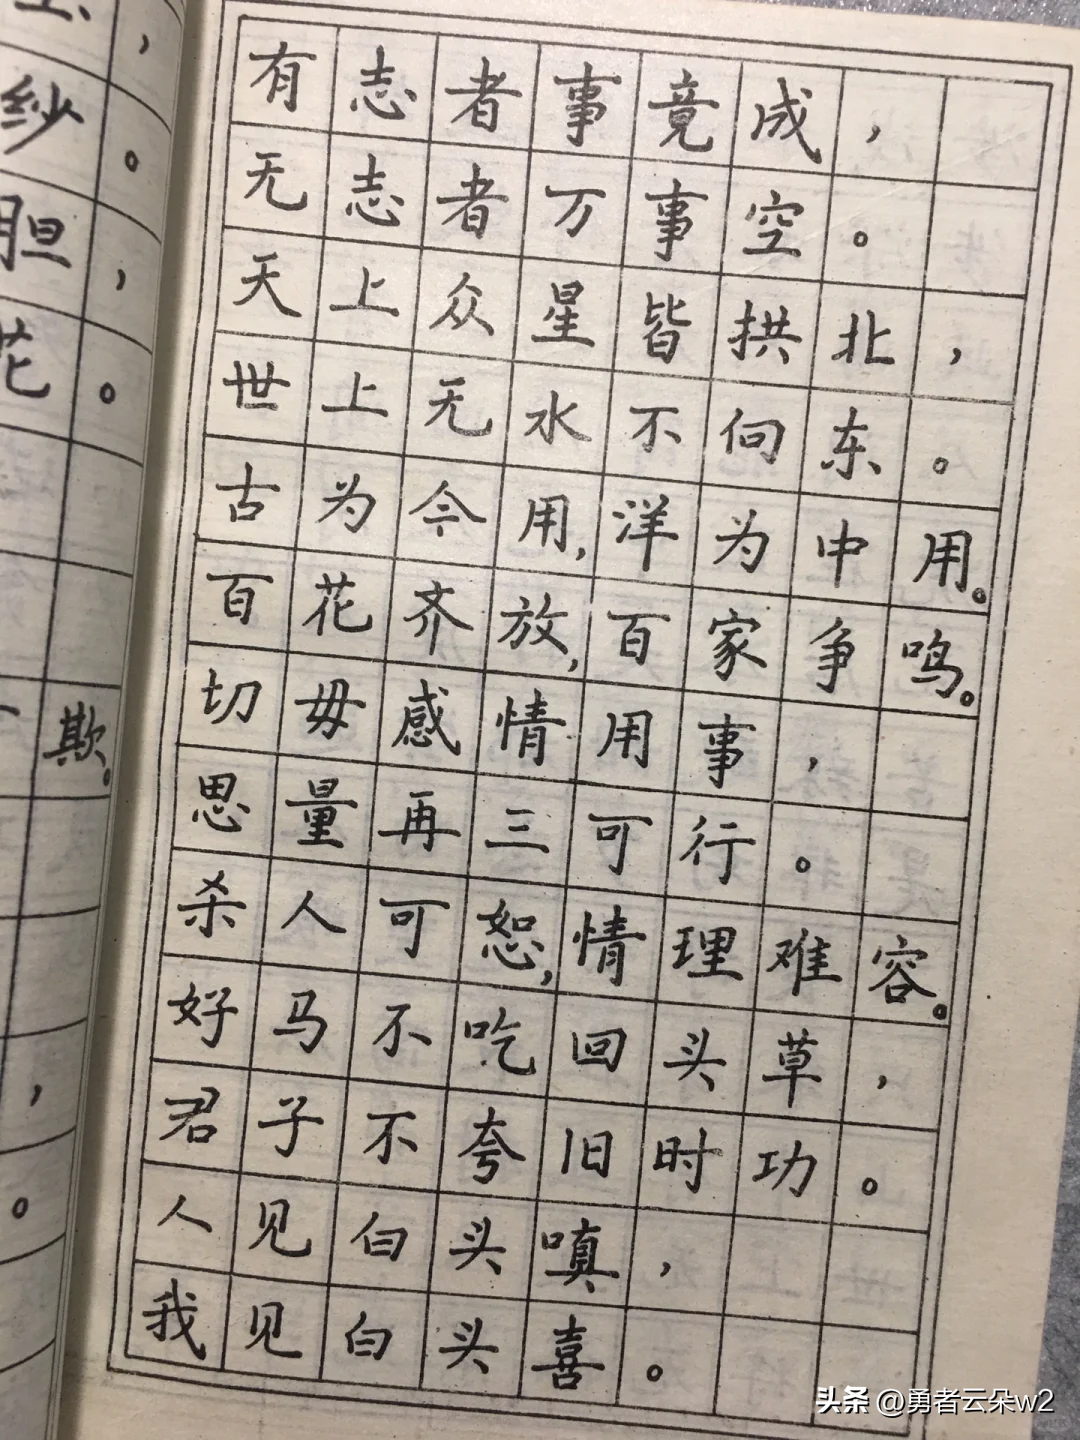 有志者事竟成，
无志者万事空。
天上众星皆拱北，
世上无水不向东。
古为今用，洋为中用。
百花齐放，百家争鸣。
切毋感情用事，
思量再三可行。
杀人可恕，情理难容。
好马不吃回头草，
君子不夸旧时功。
人见白头嗔，
我见白头喜。
纱。
胆，
花。
欺。
头条 @勇者云朵w2